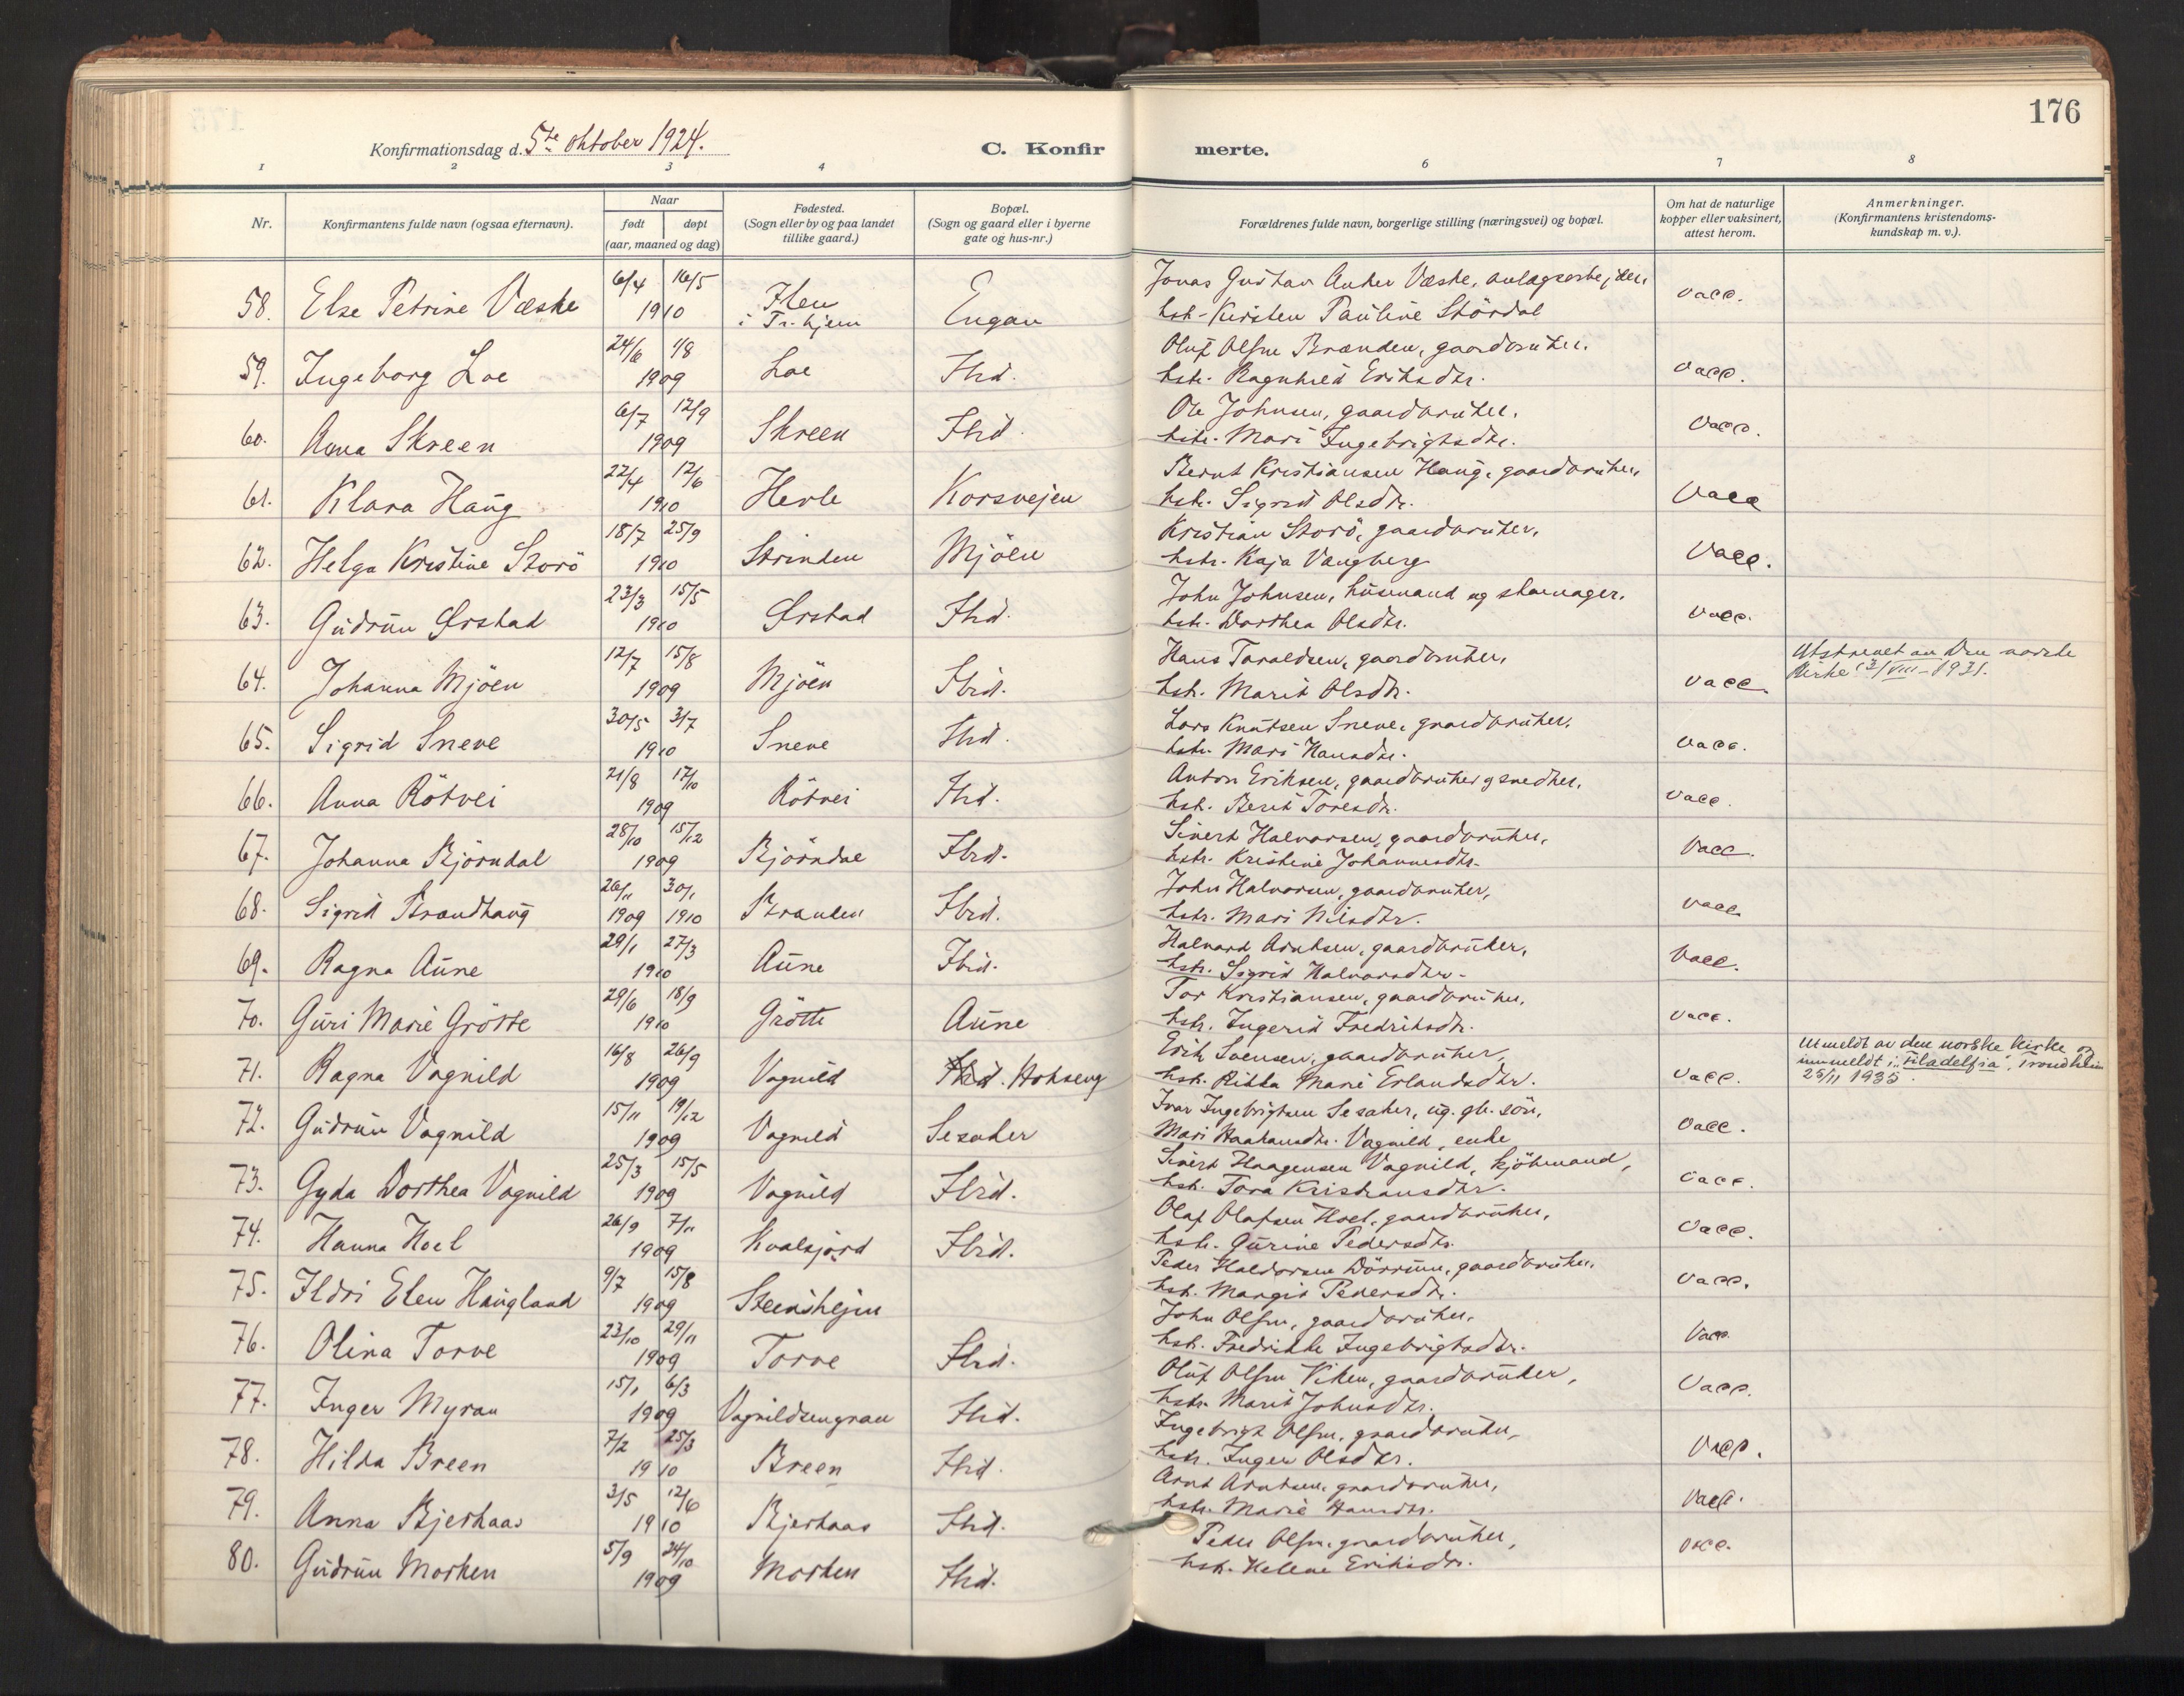 176
Konfirmationsdag d. 5te oktober 1924.
C. Konfirmerte.
1 2 3 4 6 7 8
Nr.
Konfirmantens fulde navn (ogsaa efternavn).
Naar
født døpt
(aar, maaned og dag)
Fødested.
(Sogn eller by og paa landet
tillike gaard.)
Bopæl.
(Sogn og gaard eller i byerne
gate og hus-nr.)
Forældrenes fulde navn, borgerlige stilling (næringsvei) og bopæl.
Om hat de naturlige
kopper eller vaksinert,
attest herom.
Anmerkninger.
(Konfirmantens kristendoms-
kundskap m. v.).
58. Else Petrine Væske 6/4 16/5 1910 Ilen i Tr.hjem Engan Jonas Gustav Anker Væske, anlægsarbejder, vacc.
hstr. Kirsten Pauline Stördal
59. Ingeborg Loe 24/6 1/8 1909 Loe Ibid. Oluf Olsen Brænden, gaardbruker. vacc.
hstr. Ragnhild Eriksdtr.
60. Anna Skreen 6/7 12/9 1909 Skreen Ibid. Ole Johnsen, gaardbruker. vacc.
hstr. Mari Ingebrigtsdtr.
61. Klara Haug 22/4 12/6 1910 Herle Korsvejen Bernt Kristiansen Haug, gaardbruker, vacc
hstr. Sigrid Olsdtr.
62. Helga Kristine Storö 18/7 25/9 1910 Strinden Mjöen Kristian Storö, gaardbruker. vacc.
hstr. Kaja Vangberg
63. Gudrun Ørstad 23/3 15/5 1910 Ørstad Ibid. John Johnsen, husmand og skomager. vacc.
hstr. Dorthea Olsdtr.
64. Johanna Mjöen 12/7 15/8 1909 Mjöen Ibid. Hans Taraldsen, gaardbruker, vacc. Utstrevet av Den norske
hstr. Marit Olsdtr. Kirke 13/VIII-1931.
65. Sigrid Sneve 30/5 3/7 1910 Sneve Ibid. Lars Knutsen Sneve, gaardbruker. vacc.
hstr. Mari Hansdtr.
66. Anna Rötvei 21/8 17/10 1909 Rötvei Ibid. Anton Eriksen, gaardbruker og snedker. vacc.
hstr. Berit Toresdtr.
67. Johanna Björndal 28/10 15/12 1909 Björndal Ibid. Sivert Halvorsen, gaardbruker, vacc.
hstr. Kristine Johannesdtr.
68. Sigrid Strandhaug 26/11 30/1 1909 1910 Stranden Ibid. John Halvorsen, gaardbruker, vacc
hstr. Mari Nilsdtr.
69. Ragna Aune 29/1 27/3 1910 Aune Ibid. Halvard Arntsen, gaardbruker, vacc.
hstr. Sigrid Halvorsdtr.
70. Guri Marie Grötte 29/6 18/9 1910 Grötte Aune Tor Kristiansen, gaardbruker, vacc.
hstr. Ingerid Fredriksdtr.
71. Ragna Vognild 16/8 26/9 1909 Vognild Ibid. Hokseng Erik Svensen, gaardbruker, vacc. Utmeldt av den norske kirke og
hstr. Rikka Marie Erlandsdtr. innmeldt i "Filadelfia", Trondheim
25/11 1935.
72. Gudrun Vognild 15/11 19/12 1909 Vognild Sesaker Ivar Ingebrigtsen Sesaker, ug. gb. sön, vacc.
Mari Haakansdtr. Vognild, enke
73. Gyda Dorthea Vognild 25/3 15/5 1909 Vognild Ibid. Sivert Haagensen Vognild, kjöbmand, vacc.
hstr. Tora Kristiansdtr.
74. Hanna Hoel 26/9 7/11 1909 Kvalsjord Ibid. Olaf Olafsen Hoel, gaardbruker, vacc.
hstr. Gurine Pedersdtr.
75. Ildri Elen Haugland 9/7 15/8 1909 Steinshejm Peder Haldorsen Dörrum, gaardbruker. vacc.
hstr. Margit Pedersdtr.
76. Olina Torve 23/10 29/11 1909 Torve Ibid. John Olsen, gaardbruker. vacc.
hstr. Fredrikke Ingebrigtsdtr.
77. Inger Myran 15/1 6/3 1909 Vognildsengran Ibid. Oluf Olsen Viken, gaardbruker, vacc.
hstr. Marit Johnsdtr.
78. Hilda Breen 7/2 25/3 1910 Breen Ibid. Ingebrigt Olsen, gaardbruker, vacc.
hstr. Inger Olsdtr.
79. Anna Bjerkaas 3/5 12/6 1910 Bjerkaas Ibid. Arnt Arntsen, gaardbruker, vacc.
hstr. Marie Hansdtr.
80. Gudrun Morken 5/9 24/10 1909 Morken Ibid. Peder Olsen, gaardbruker, vacc.
hstr. Helene Eriksdtr.